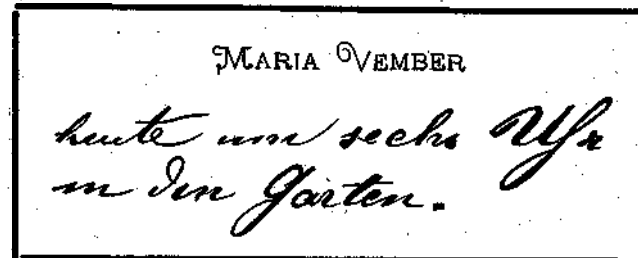 MARIA VEMBER
heute um sechs Uhr
in den Garten.